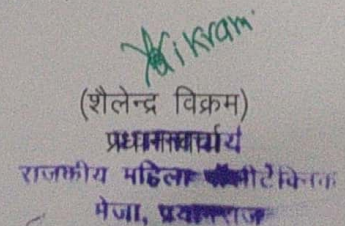 Vikram
(शैलेन्द्र विक्रम)
प्रधानाचार्य
राजकीय महिला पॉलीटेक्निक
मेजा, प्रयागराज